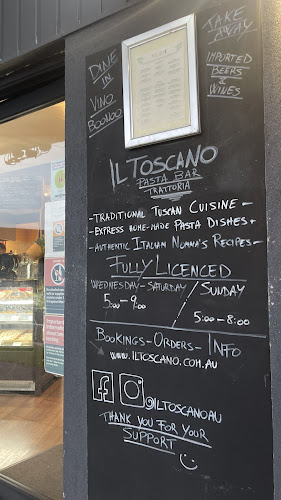 DINE IN
VINO
BOONOO
TAKE AWAY
IMPORTED
BEERS &
WINES
IL TOSCANO
PASTA BAR
TRATTORIA
- TRADITIONAL TUSCAN CUISINE -
- EXPRESS HOME-MADE PASTA DISHES -
- AUTHENTIC ITALIAN NONNA'S RECIPES -
FULLY LICENCED
WEDNESDAY - SATURDAY / SUNDAY
5:00 - 9:00
5:00 - 8:00
BOOKINGS - ORDERS - INFO
WWW.ILTOSCANO.COM.AU
@ILTOSCANOAU
THANK YOU FOR YOUR
SUPPORT